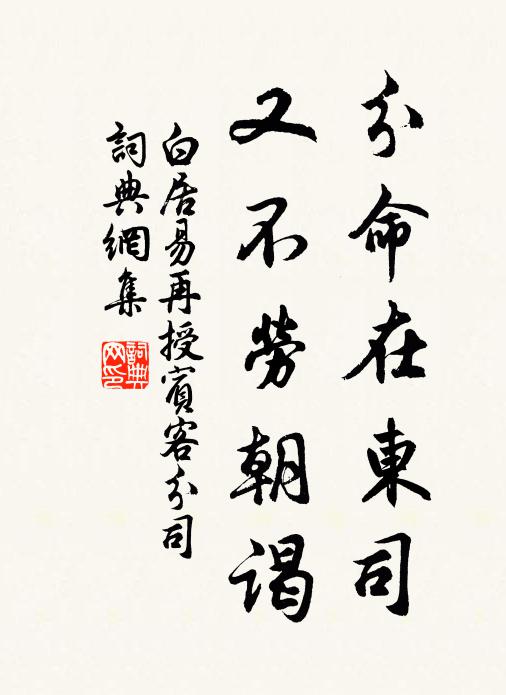 分命在東司
又不勞朝謁
白居易再授賓客分司
詞典網集
詞典
网印